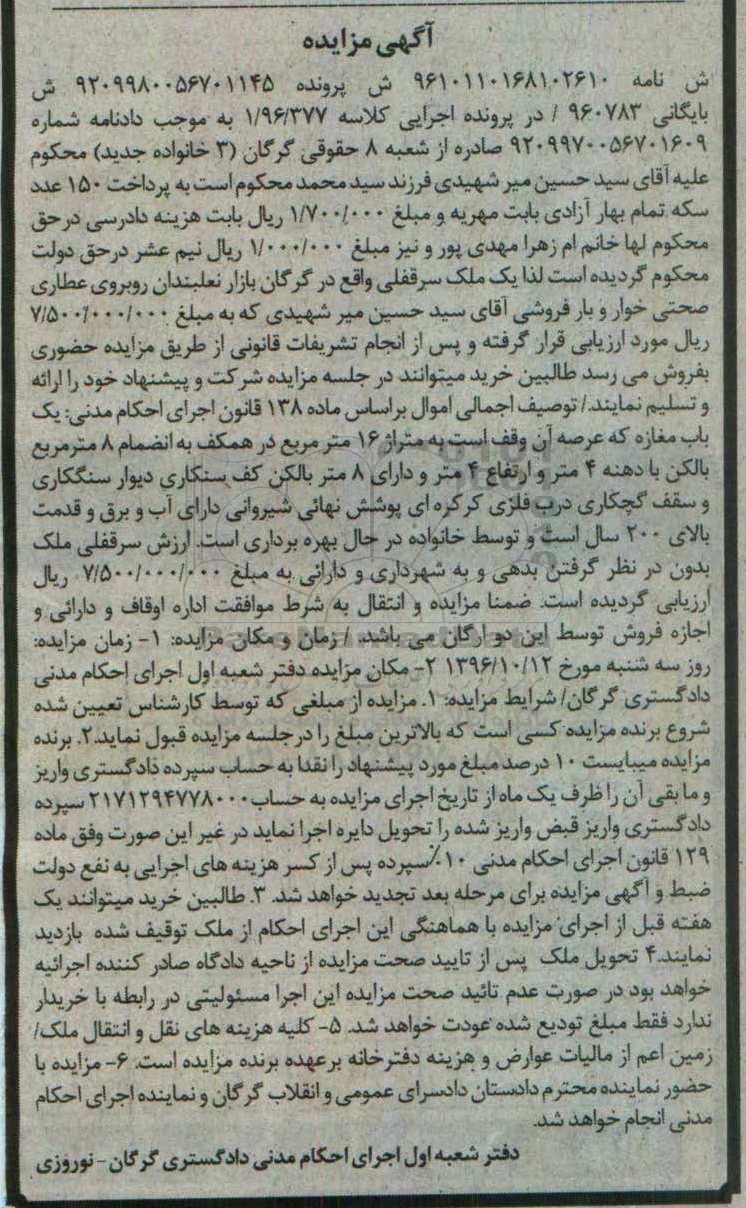 آگهی مزایده
ش نامه ۹۶۱۰۱۱۰۱۶۸۱۰۲۶۱۰ ش پرونده ۹۲۰۹۹۸۰۰۵۶۷۰۱۱۴۵ ش
بایگانی ۹۶۰۷۸۳ / در پرونده اجرایی کلاسه ۱/۹۶/۳۷۷ به موجب دادنامه شماره
۹۲۰۹۹۷۰۰۵۶۷۰۱۶۰۹ صادره از شعبه ۸ حقوقی گرگان (۳ خانواده جدید) محکوم
علیه آقای سید حسین میر شهیدی فرزند سید محمد محکوم است به پرداخت ۱۵۰ عدد
سکه تمام بهار آزادی بابت مهریه و مبلغ ۱/۷۰۰/۰۰۰ ریال بابت هزینه دادرسی درحق
محکوم لها خانم ام زهرا مهدی پور و نیز مبلغ ۱/۰۰۰/۰۰۰ ریال نیم عشر درحق دولت
محکوم گردیده است لذا یک ملک سرقفلی واقع در گرگان بازار نعلبندان روبروی عطاری
صحتی خوار و بار فروشی آقای سید حسین میر شهیدی که به مبلغ ۷/۵۰۰/۰۰۰/۰۰۰
ریال مورد ارزیابی قرار گرفته و پس از انجام تشریفات قانونی از طریق مزایده حضوری
بفروش می رسد طالبین خرید میتوانند در جلسه مزایده شرکت و پیشنهاد خود را ارائه
و تسلیم نمایند./ توصیف اجمالی اموال براساس ماده ۱۳۸ قانون اجرای احکام مدنی: یک
باب مغازه که عرصه آن وقف است به متراژ ۱۶ متر مربع در همکف به انضمام ۸ مترمربع
بالکن با دهنه ۴ متر و ارتفاع ۴ متر و دارای ۸ متر بالکن کف سنکاری دیوار سنگکاری
و سقف گچکاری درب فلزی کرکره ای پوشش نهائی شیروانی دارای آب و برق و قدمت
بالای ۲۰۰ سال است و توسط خانواده در حال بهره برداری است. ارزش سرقفلی ملک
بدون در نظر گرفتن بدهی و به شهرداری و دارائی به مبلغ ۷/۵۰۰/۰۰۰/۰۰۰ ریال
ارزیابی گردیده است. ضمنا مزایده و انتقال به شرط موافقت اداره اوقاف و دارائی و
اجازه فروش توسط این دو ارگان می باشد. / زمان و مکان مزایده: ۱- زمان مزایده:
روز سه شنبه مورخ ۱۳۹۶/۱۰/۱۲ ۲- مکان مزایده دفتر شعبه اول اجرای احکام مدنی
دادگستری گرگان/ شرایط مزایده: ۱. مزایده از مبلغی که توسط کارشناس تعیین شده
شروع برنده مزایده کسی است که بالاترین مبلغ را درجلسه مزایده قبول نماید.۲. برنده
مزایده میبایست ۱۰ درصد مبلغ مورد پیشنهاد را نقدا به حساب سپرده دادگستری واریز
و مابقی آن را ظرف یک ماه از تاریخ اجرای مزایده به حساب ۲۱۷۱۲۹۴۷۷۸۰۰۰ سپرده
دادگستری واریز قبض واریز شده را تحویل دایره اجرا نماید در غیر این صورت وفق ماده
۱۲۹ قانون اجرای احکام مدنی ۱۰٪ سپرده پس از کسر هزینه های اجرایی به نفع دولت
ضبط و آگهی مزایده برای مرحله بعد تجدید خواهد شد. ۳. طالبین خرید میتوانند یک
هفته قبل از اجرای مزایده با هماهنگی این اجرای احکام از ملک توقیف شده بازدید
نمایند.۴ تحویل ملک پس از تایید صحت مزایده از ناحیه دادگاه صادر کننده اجرائیه
خواهد بود در صورت عدم تائید صحت مزایده این اجرا مسئولیتی در رابطه با خریدار
ندارد فقط مبلغ تودیع شده عودت خواهد شد. ۵- کلیه هزینه های نقل و انتقال ملک/
زمین اعم از مالیات عوارض و هزینه دفترخانه برعهده برنده مزایده است. ۶- مزایده با
حضور نماینده محترم دادستان دادسرای عمومی و انقلاب گرگان و نماینده اجرای احکام
مدنی انجام خواهد شد.
دفتر شعبه اول اجرای احکام مدنی دادگستری گرگان - نوروزی